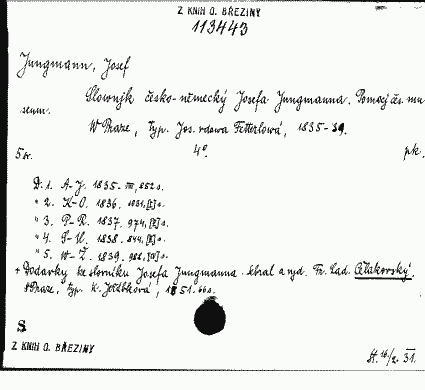 Z KNIH O. BŘEZINY
113443
Jungmann, Josef
Slownjk česko-německý Josefa Jungmanna. Pomocj čes. mu
seum.
W Praze, typ. Jos. vdowa Fetterlowá, 1835-39.
5 sv. 4°. pk.
D. 1. A-J. 1835. III, 852 s.
" 2. K-O. 1836. 1031, [1] s.
" 3. P-R. 1837. 974, [2] s.
" 4. S-U. 1838. 844, [2] s.
" 5. W-Ž. 1839. 988, s.
+ Dodavky ke slovníku Josefa Jungmanna. Sebral a vyd. Fr. Lad. Čelakovský.
W Praze, typ. K. Jeřábková, 1851. 66 s.
S
Z KNIH O. BŘEZINY
St. 16/2. 31.